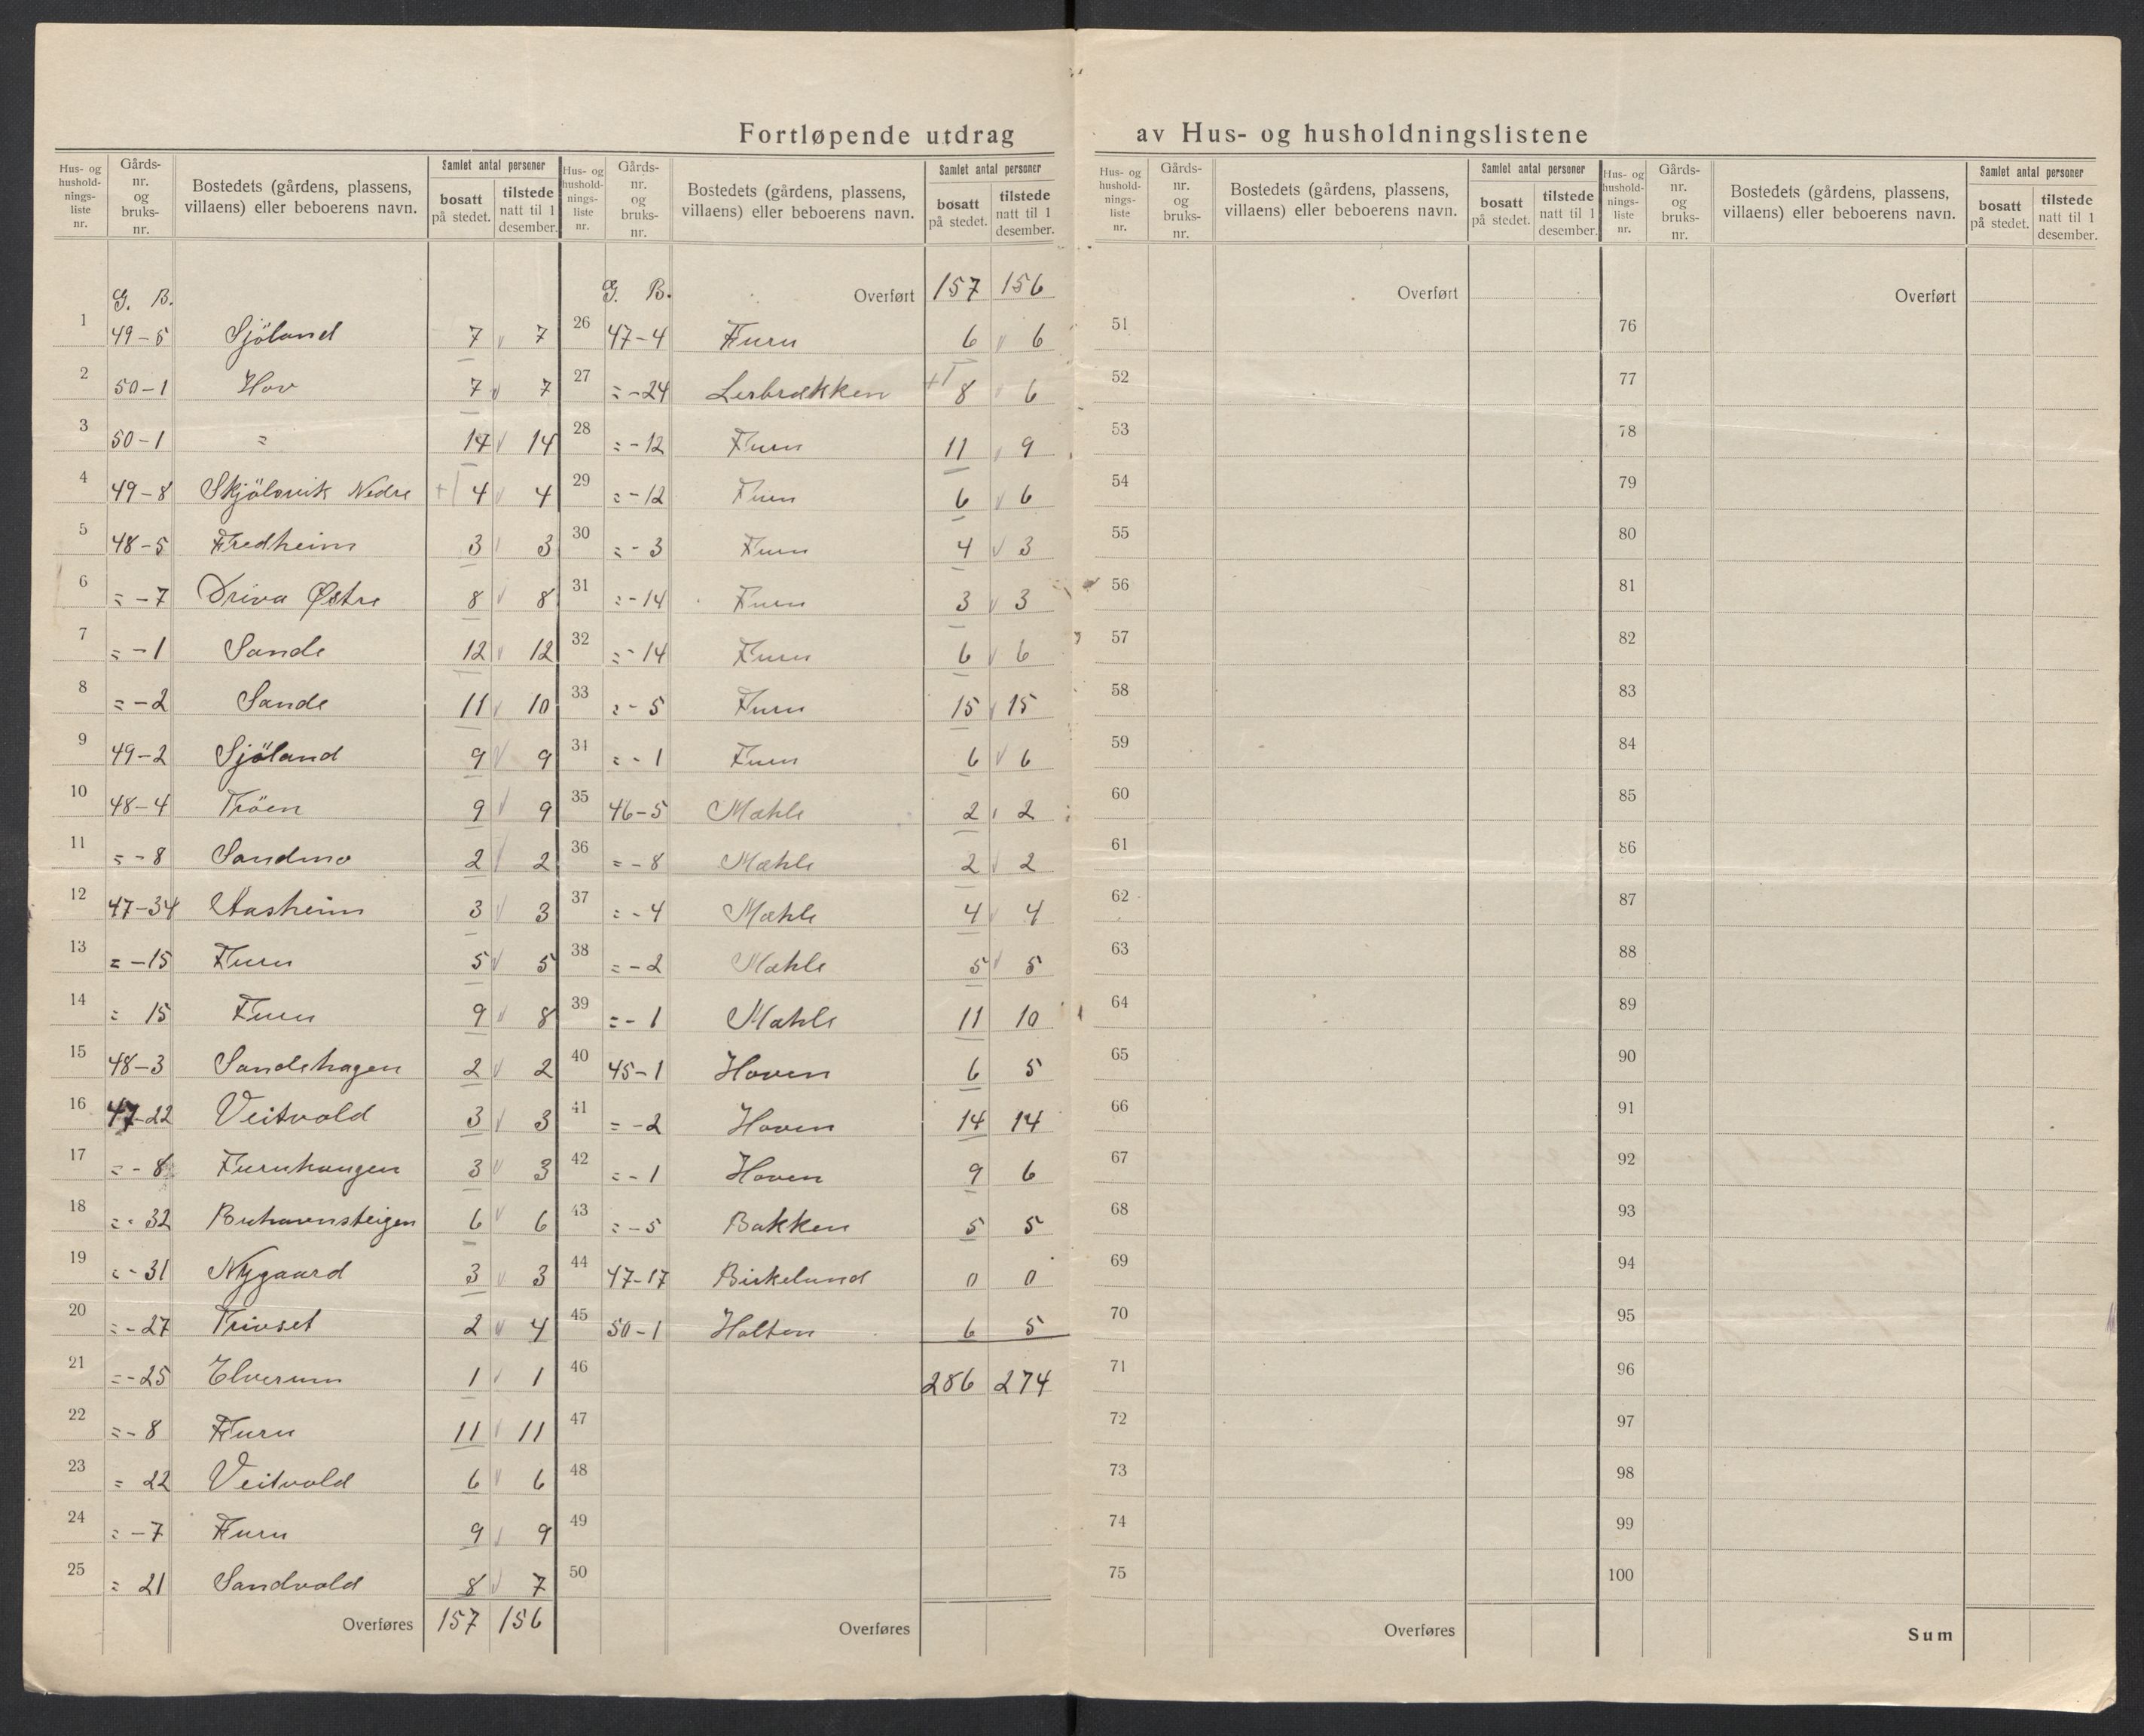 Fortløpende utdrag av Hus- og husholdningslistene
Hus- og hushold- nings- liste nr. | Gårds- nr. og bruks- nr. | Bostedets (gårdens, plassens, villaens) eller beboerens navn. | Samlet antal personer | bosatt på stedet. | tilstede natt til 1 desember.
Hus- og hushold- nings- liste nr. | Gårds- nr. og bruks- nr. | Bostedets (gårdens, plassens, villaens) eller beboerens navn. | Samlet antal personer | bosatt på stedet. | tilstede natt til 1 desember.
Hus- og hushold- nings- liste nr. | Gårds- nr. og bruks- nr. | Bostedets (gårdens, plassens, villaens) eller beboerens navn. | Samlet antal personer | bosatt på stedet. | tilstede natt til 1 desember.
Hus- og hushold- nings- liste nr. | Gårds- nr. og bruks- nr. | Bostedets (gårdens, plassens, villaens) eller beboerens navn. | Samlet antal personer | bosatt på stedet. | tilstede natt til 1 desember.
G. B.
1 49-5 Sjöland 7 7
2 50-1 Hov 7 7
3 50-1 = 14 14
4 49-8 Skjölsvik Nedre +1 4 4
5 48-5 Fredheim 3 3
6 = -7 Driva Østre 8 8
7 = -1 Sande 12 12
8 = -2 Sande 11 10
9 49-2 Sjöland 9 9
10 48-4 Tröen 9 9
11 = -8 Sandmo 2 2
12 47-34 Aasheim 3 3
13 = -15 Furu 5 5
14 = 15 Furu 9 8
15 48-3 Sandehagen 2 2
16 47-22 Veitvold 3 3
17 = -8 Furuhaugen 3 3
18 = -32 6 6
19 = -31 Nygaard 3 3
20 = -27 Trivset 2 4
21 = -25 Elverum 1 1
22 = -8 Furu 11 11
23 = 22 Veitvold 6 6
24 = -7 Furu 9 9
25 = 21 Sandvold 8 7
Overføres 157 156
G. B. Overført 157 156
26 47-4 Furu 6 6
27 = -24 Lerbrækken +1 8 6
28 = -12 Furu 11 9
29 = -12 Furu 6 6
30 = -3 Furu 4 3
31 = -14 Furu 3 3
32 = -14 Furu 6 6
33 = -5 Furu 15 15
34 = -1 Furu 6 6
35 46-5 Mæhle 2 2
36 = -8 Mæhle 2 2
37 = -4 Mæhle 4 4
38 = -2 Mæhle 5 5
39 = -1 Mæhle 11 10
40 45-1 Hoven 6 5
41 = -2 Hoven 14 14
42 = -1 Hoven 9 6
43 = -5 Bakken 5 5
44 47-17 Birkelund 0 0
45 50-1 Holten 6 5
46 286 274
47
48
49
50
Overføres
Overført
51
52
53
54
55
56
57
58
59
60
61
62
63
64
65
66
67
68
69
70
71
72
73
74
75
Overføres
Overført
76
77
78
79
80
81
82
83
84
85
86
87
88
89
90
91
92
93
94
95
96
97
98
99
100
Sum